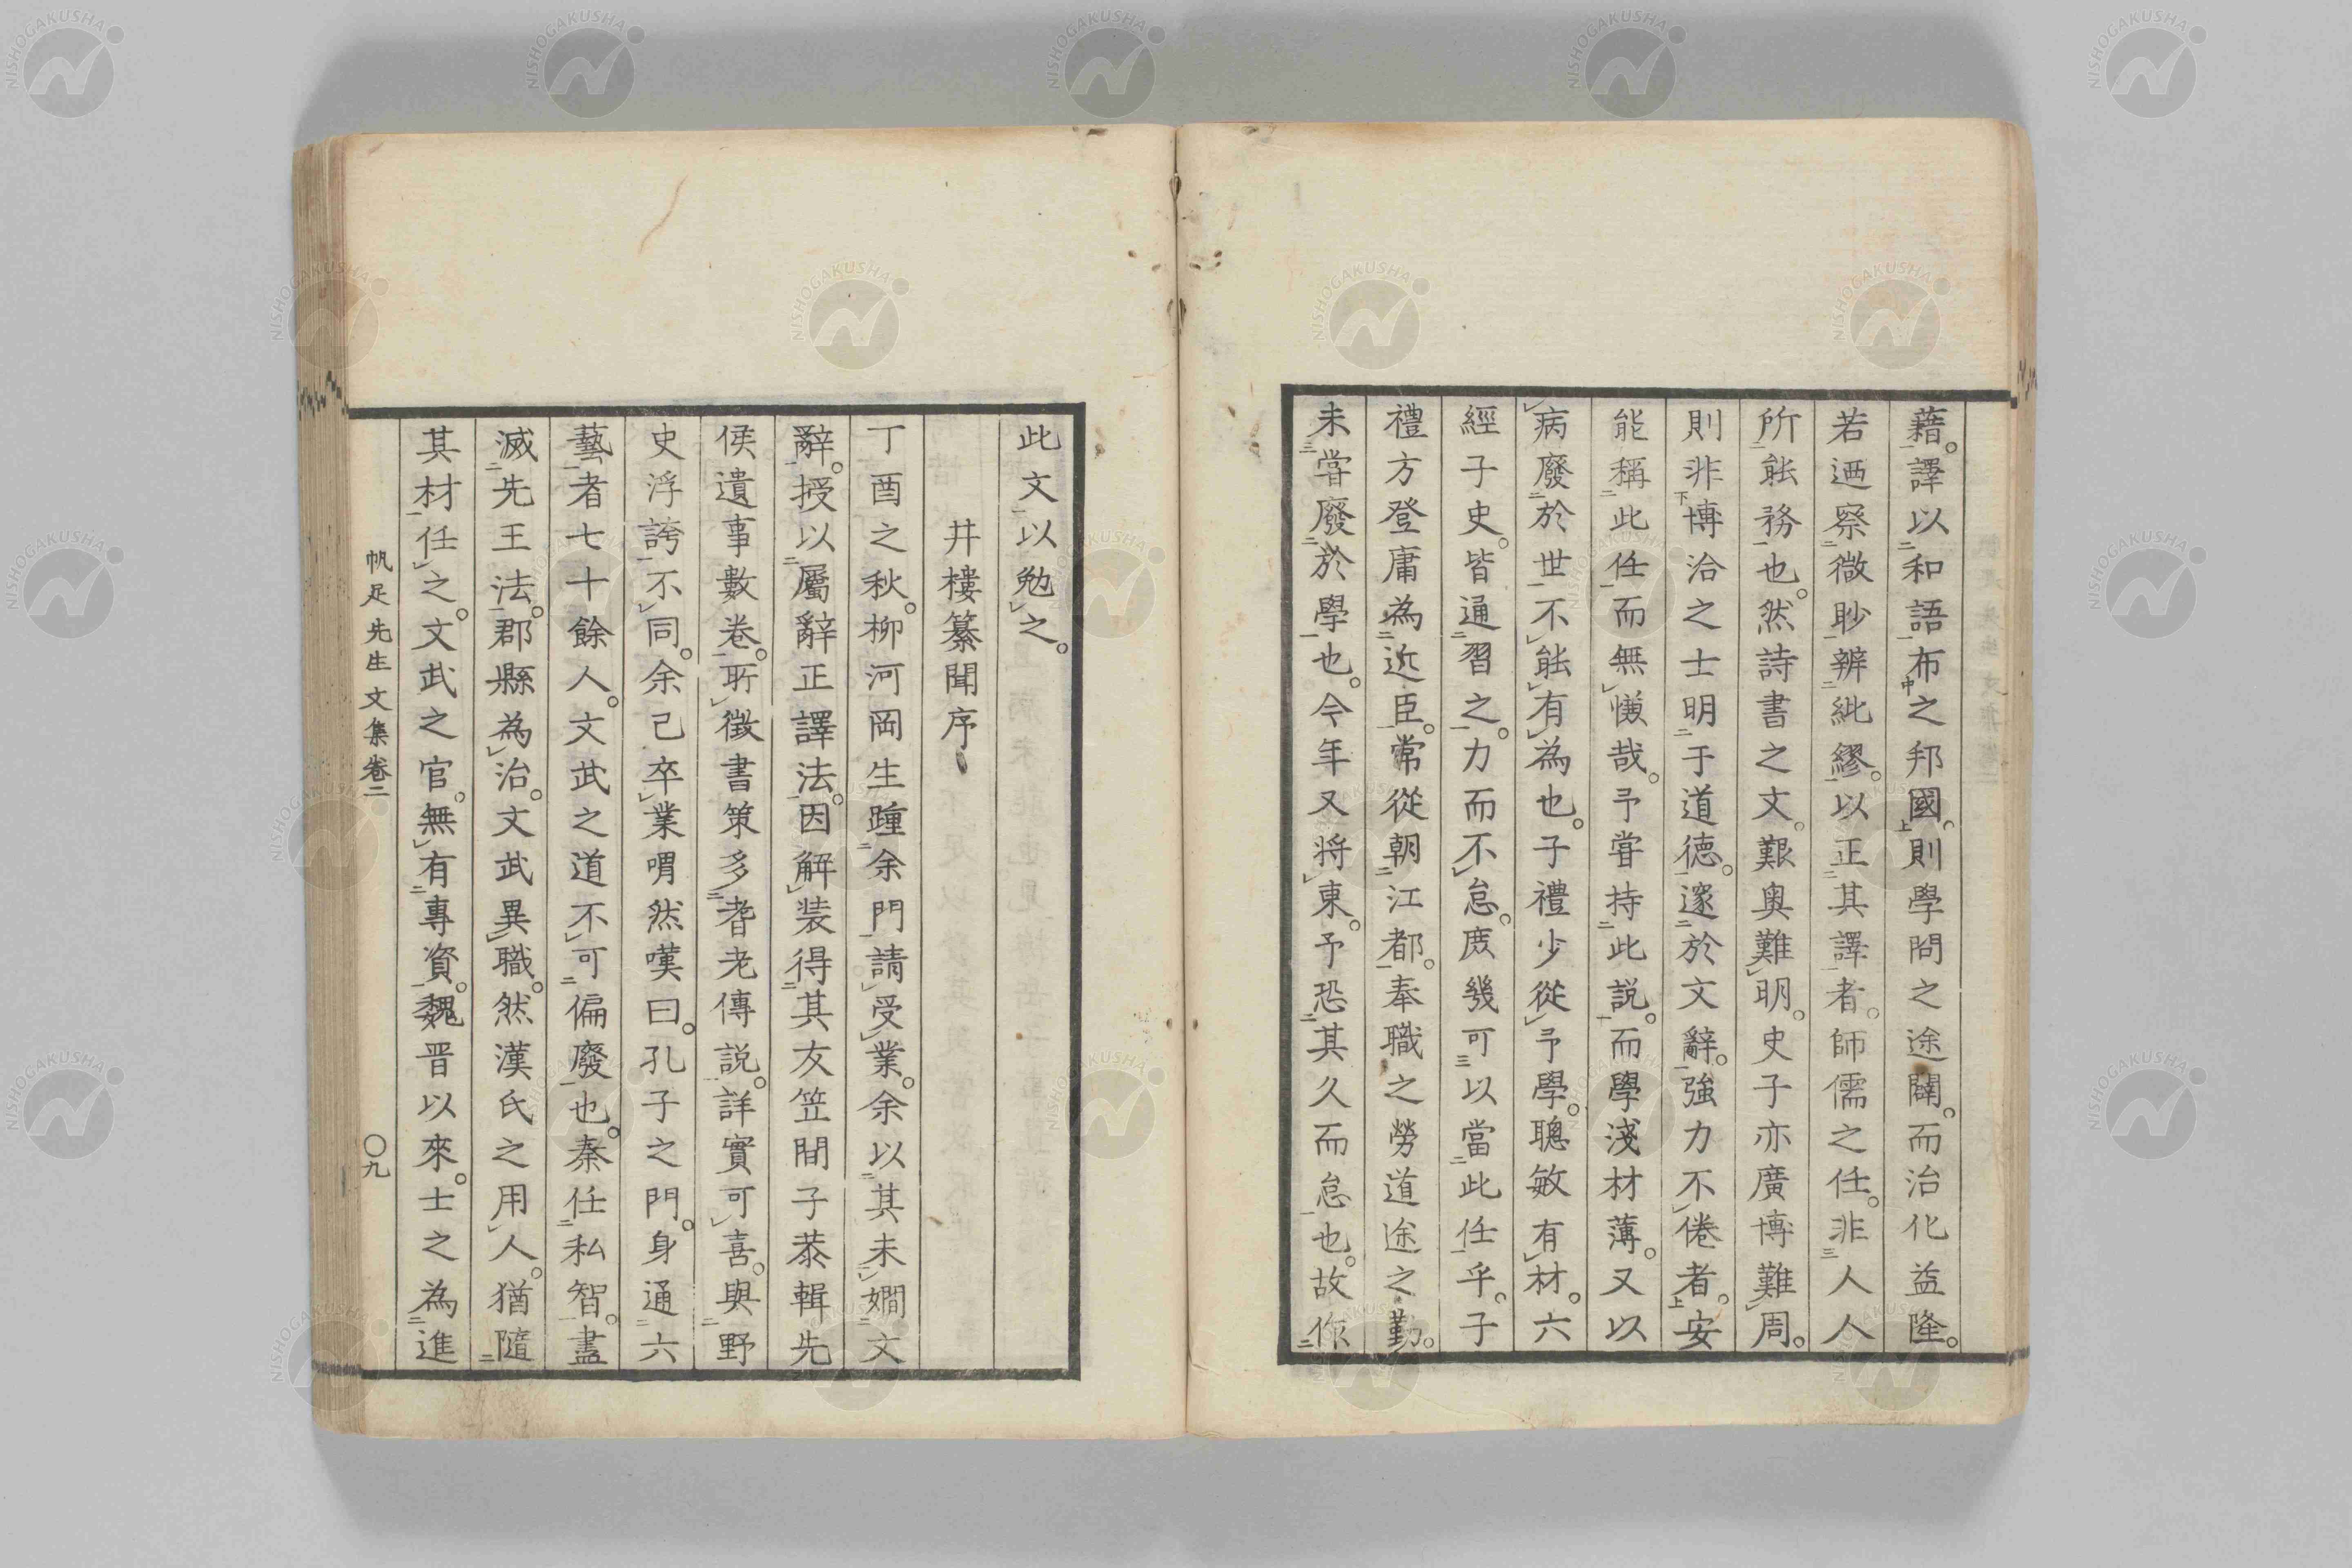 藉。譯以和語布之邦國。則學問之途闢。而治化益隆。
若迺察微眇辨紕繆。以正其譯者。師儒之任。非人人
所能務也。然詩書之文。艱奧難明。史子亦廣博難周。
則非博洽之士明于道德。邃於文辭。強力不倦者。安
能稱此任而無慊哉。予嘗持此説。而學淺材薄。又以
病廢於世不能有為也。子禮少從予學。聰敏有材。六
經子史。皆通習之。力而不怠。庶幾可以當此任乎。子
禮方登庸為近臣。常從朝江都。奉職之勞道途之勤。
未嘗廢於學也。今年又將東。予恐其久而怠也。故作
此文以勉之。
井樓纂聞序
丁酉之秋。柳河岡生踵余門請受業。余以其未嫺文
辭。授以屬辭正譯法。因解装得其友笠間子恭輯先
侯遺事數卷。所徴書策多耆老傳説。詳實可喜。與野
史浮誇不同。余己卒業喟然嘆曰。孔子之門。身通六
藝者七十餘人。文武之道不可偏廢也。秦任私智。盡
滅先王法。郡縣為治。文武異職。然漢氏之用人。猶隨
其材任之。文武之官。無有專資。魏晋以來。士之為進
帆足先生文集卷二
〇九
NISHOGAKUSHA